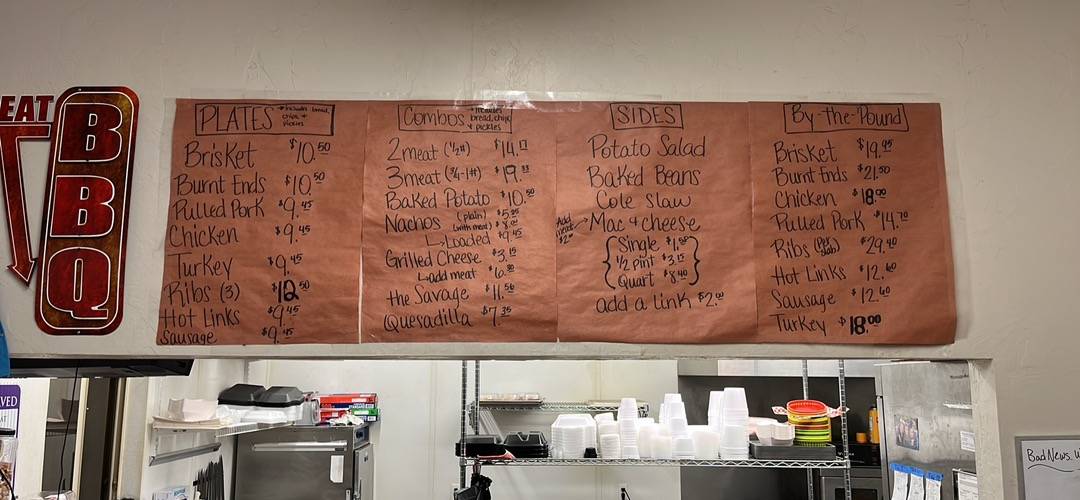 EAT
BBQ
PLATES *includes bread, chips + pickles
Brisket $10.50
Burnt Ends $10.50
Pulled Pork $9.45
Chicken $9.45
Turkey $9.45
Ribs (3) $12.50
Hot Links $9.45
Sausage $9.45
Combos *includes bread, chips + pickles
2 meat (1/2#)
3 meat (3/4-1#)
Baked Potato $10.50
Nachos (plain)
(with meat)
Loaded $9.45
Grilled Cheese $3.15
add meat
the Savage $11.56
Quesadilla $7.35
SIDES
Potato Salad
Baked Beans
Cole slaw
Add meat
Mac + cheese
Single
1/2 pint $3.15
Quart $8.40
add a link $2.00
By-the-Pound
Brisket $19.95
Burnt Ends $21.50
Chicken $18.00
Pulled Pork $14.70
Ribs (Per Slab) $29.40
Hot Links $12.60
Sausage $12.60
Turkey $18.00
VED
Bad News. W